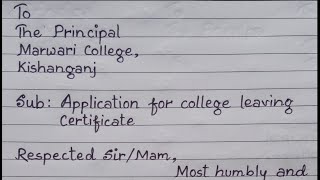 To
The Principal
Marwari College,
Kishanganj
Sub: Application for college leaving
Certificate
Respected Sir/Mam,
Most humbly and